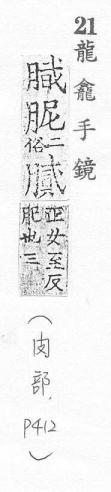 21 龍龕手鏡
胒二俗膩正女至反
肥也三
(肉部, P412)